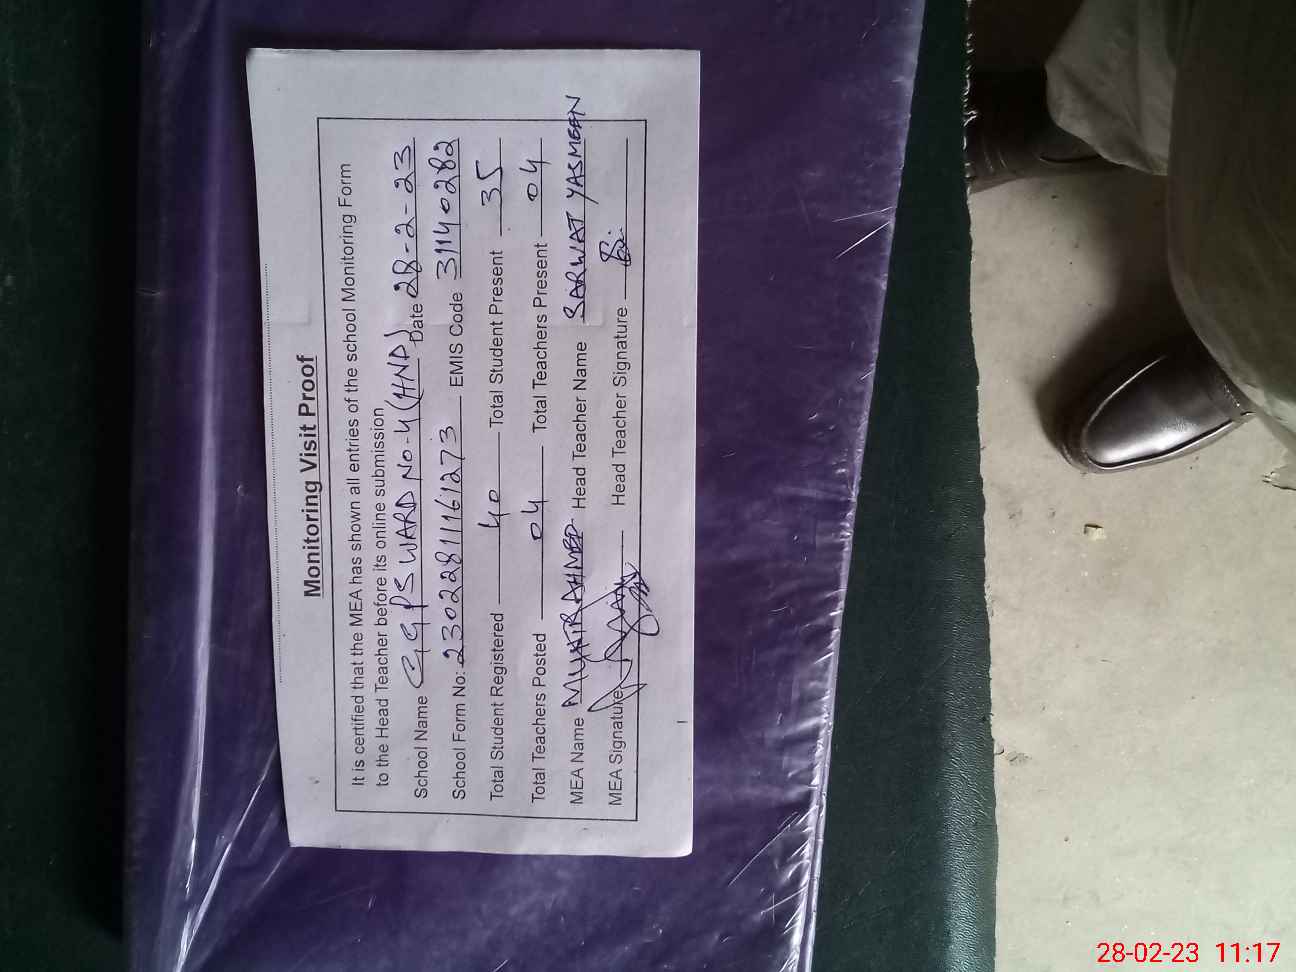 Monitoring Visit Proof
It is certified that the MEA has shown all entries of the school Monitoring Form
to the Head Teacher before its online submission
School Name GGPS WARD NO-4 (HND) Date 28-2-23
School Form No: 23022811161273 EMIS Code 31140282
Total Student Registered 40 Total Student Present 35
Total Teachers Posted 04 Total Teachers Present 04
MEA Name AHMED Head Teacher Name SARWAT YASMEEN
MEA Signature Head Teacher Signature
28-02-23 11:17